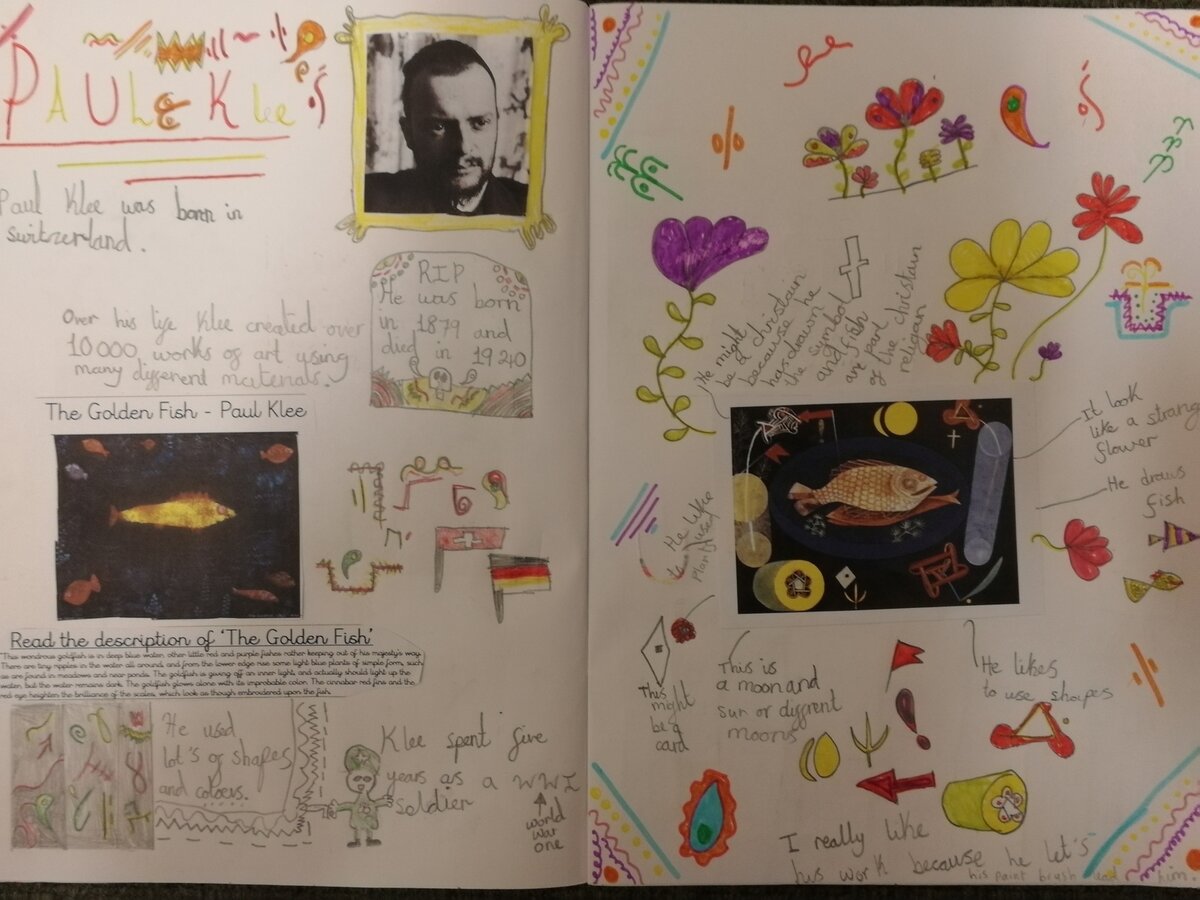 PAUL Klee
Paul Klee was born in
switzerland.
RIP
He was born
in 1879 and
died in 1940
Over his life Klee created over
10000 works of art using
many different materials.
The Golden Fish - Paul Klee
Read the description of 'The Golden Fish'
"This wondrous goldfish is in deep blue water, other little red and purple fishes rather keeping out of his majesty's way.
There are tiny ripples in the water all around, and from the lower edge rise some light blue plants of simple form, such
as are found in meadows and near ponds. The goldfish is giving off an inner light, and actually should light up the
water, but the water remains dark. The goldfish glows alone with its improbable color. The cinnabar red fins and the
red eye heighten the brilliance of the scales, which look as though embroidered upon the fish.
He used
lot's of shapes
and colours.
Klee spent five
years as a WWI
soldier
world
war
one
He might
be a christain
because he
has drawn he
the symbol
and fish
are part
of the christain
religion
It look
like a strang
flower
He draws
fish
He like
used
This
might
be a
card
This is
a moon and
sun or different
moons
He likes
to use shapes
I really like
his work because he let's
his paint brush lead him.